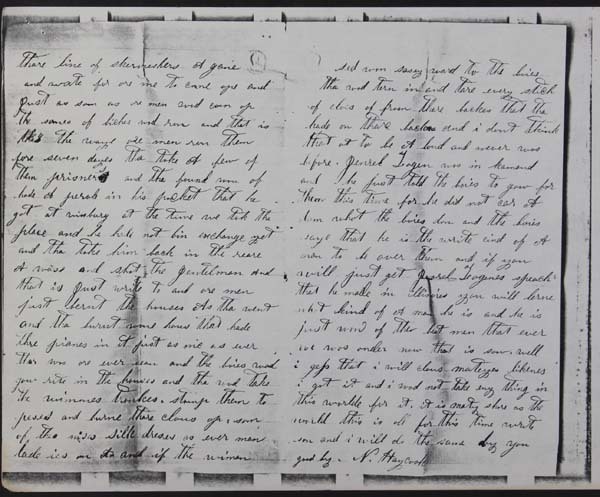 there line of skermeshers a gane
and wate for ore me to come ope and
just as soon as ore men wod com op
the sones of biches wod run and that is
the waye ore men run them
fore seven dayes tha take a few of
them prisners and tha found won of
hade a parole in his pocket that he
got at vixburg at the time we tok the
place and he hade not bin exchange yet
and tha take him back in the reare
and shot the gentelman and
that is just write to and ore men
just bernt the houses as tha went
and tha burnt some hous that hade
thre pianes in it just as nice as ever
was ore ever seen and the boies wod
gow rite in the houses and tha wod take
the wimmens trunkes stomp them to
peses and burne there clous op som
of the nises silk dreses as ever man
lade ies on and if the wimen
sed won sasey word to the boies
tha wod tern in and tare every stich
of clous of from thare backes that tha
hade on there backes and i dont think
that at to be a lond and never was
before. Jenrel Logen was in kamand
and he just told the boies to gow for
them this time for he did not car a
dam what the boies don and the boies
saye that he is the write cind of a
man to be over them and if you
will just get Jenrel Logenes speach
that he made in Illinoies you will lerne
what kind of a man he is and he is
just won of the best man that ever
we was onder now that is sow. well
i gess that i will clous. likenes
i got it and i wod not take eny thing in
this worlde for it. it is as the
world this is all for this time writ
son and i will do the same by you
good by. N. Haycook